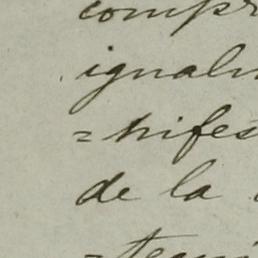 compr
igualm
=nifes
de la